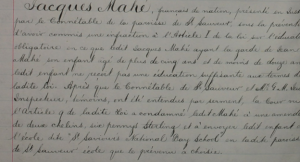 Jacques Mahé, français de nation, présenté en Justice
par le Connétable de la paroisse de St Sauveur, sous la prévention
d'avoir commis une infraction à l'Article de la loi sur l'éducation
obligatoire en ce que ledit Jacques Mahé ayant la garde de Jean
Mahé son enfant âgé de plus de cinq ans et de moins de douze ans
ledit enfant ne reçoit pas une éducation suffisante aux termes de
ladite loi. Après que le Connétable de St Sauveur et Mr G. M.
Inspecteur, témoins, ont été entendus par serment, la Cour vu
l'Article 9 de ladite Loi a condamné ledit Mahé à une amende
de deux chelins six pennys Sterling et à envoyer ledit enfant à
l'école dite "St Saviours National Day School" en ladite paroisse
de St Sauveur école que le prévenu a choisie